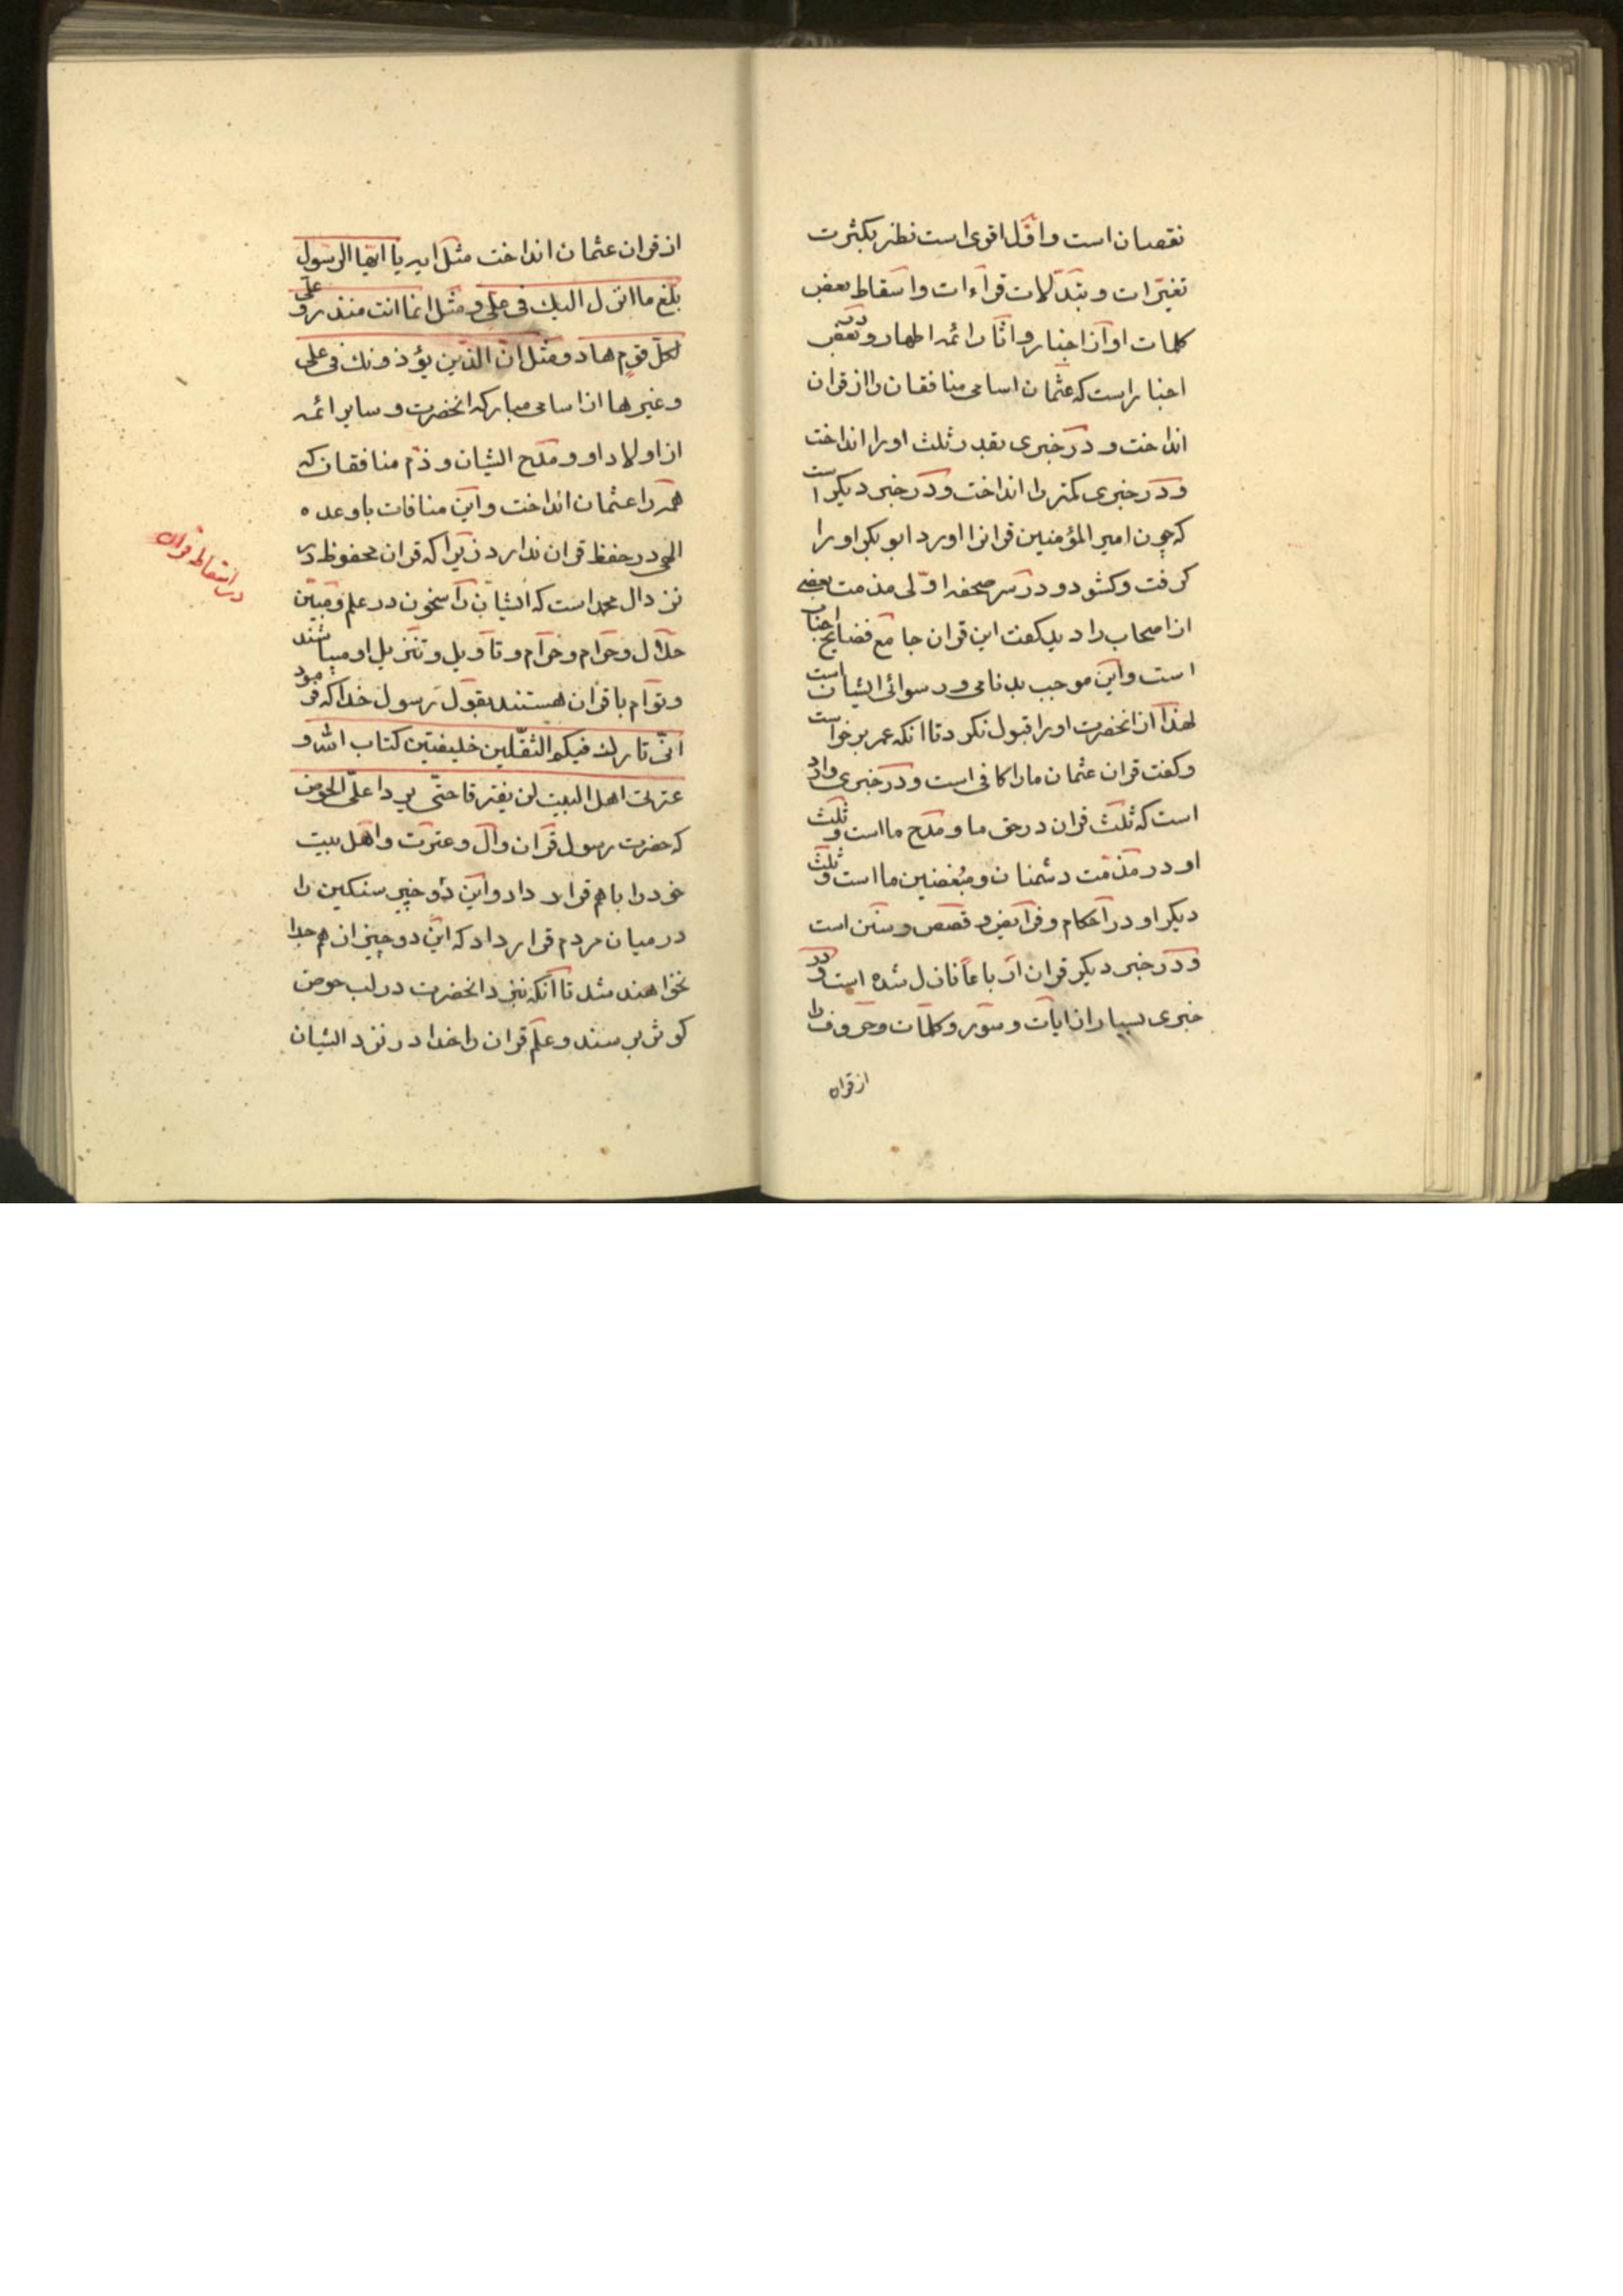 نقصان است و اوّل اقوی است نظر بکثرت
تغیّرات و تبدّلات قرآءات و اسقاط بعض
کلمات او از اخبار و اثار ائمه اطهار و در بعض
اخبار است که عثمان اسامی منافقان را از قران
انداخت و در خبری بقدر ثلث او را انداخت
و در خبری کمتر را انداخت و در خبر دیکر است
که چون امیر المؤمنین قرانرا اورد ابو بکر او را
کرفت و کشود و در سر صحفه اوّلی مذمت بعضی
از اصحاب را دید کفت این قران جامع فضایح
است و این موجب بدنامی و رسوائی ایشان است
لهذا از انحضرت او را قبول نکرد تا انکه عمر برخواست
و کفت قران عثمان ما را کافی است و در خبری وارد
است که ثلث قران در حق ما و مدح ما است و ثلث
او در مذمّت دشمنان و مبغضین ما است و ثلث
دیکر او در احکام و فرآیض و قصص و سنن است
و در خبر دیکر قران ارباعاً نازل شده است و در
خبری بسیار از ایات و سور و کلمات و حروف را
از قران
از قران عثمان انداخت مثل ایه یا ایّها الرّسول
بلّغ ما انزل الیک فی علیّ و مثل انما انت منذر و علیّ
لکلّ قوم هاد و مثل انّ الذین یؤذونک فی علی
و غیرها از اسامی مبارکه انحضرت و سایر ائمه
از اولاد او و مدح ایشان و ذمّ منافقان که
همه را عثمان انداخت و این منافات با وعده
الهی در حفظ قران ندارد زیرا که قران محفوظ در
نزد ال محمد است که ایشان راسخون در علم و مبیّن
حلال و حرام و تاویل و تنزیل او میباشند
و توام با قران هستند بقول رسول خدا که فرمود
انّی تارک فیکم الثقلین خلیفتین کتاب الله و
عترتی اهل البیت لن یفترقا حتّی یردا علیّ الحوض
که حضرت رسول قران و ال و عترت و اهل بیت
خود را با هم قرار داد و این دو چیز سنکین را
در میان مردم قرار داد که این دو چیز از هم جدا
نخواهند شد تا انکه نزد انحضرت در لب حوض
کوثر برسند و علم قران را خدا در نزد ایشان
در اسقاط قران